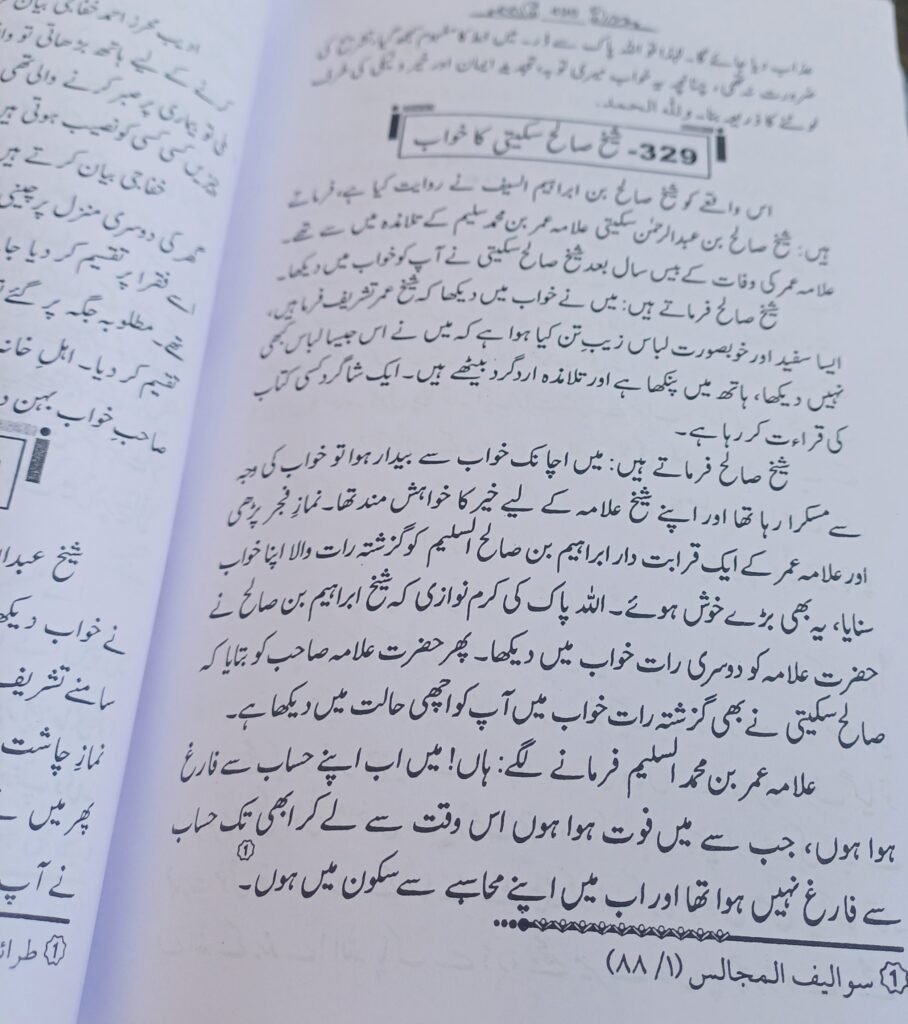 عذاب دیا جائے گا۔ لہٰذا تو اللہ پاک سے ڈر۔ میں خط کا مفہوم سمجھ گیا، تشریح کی
ضرورت نہ تھی، چنانچہ یہ خواب میری توبہ، تجدید ایمان اور خیر و نیکی کی طرف
لوٹنے کا ذریعہ بنا۔ وللہ الحمد.
329- شیخ صالح سکیتی کا خواب
اس واقعے کو شیخ صالح بن ابراہیم السیف نے روایت کیا ہے، فرماتے
ہیں: شیخ صالح بن عبدالرحمٰن سکیتی علامہ عمر بن محمد سلیم کے تلامذہ میں سے تھے۔
علامہ عمر کی وفات کے بیس سال بعد شیخ صالح سکیتی نے آپ کو خواب میں دیکھا۔
شیخ صالح فرماتے ہیں: میں نے خواب میں دیکھا کہ شیخ عمر تشریف فرما ہیں،
ایسا سفید اور خوبصورت لباس زیبِ تن کیا ہوا ہے کہ میں نے اس جیسا لباس کبھی
نہیں دیکھا، ہاتھ میں پنکھا ہے اور تلامذہ ارد گرد بیٹھے ہیں۔ ایک شاگرد کسی کتاب
کی قراءت کر رہا ہے۔
شیخ صالح فرماتے ہیں: میں اچانک خواب سے بیدار ہوا تو خواب کی وجہ
سے مسکرا رہا تھا اور اپنے شیخ علامہ کے لیے خیر کا خواہش مند تھا۔ نمازِ فجر پڑھی
اور علامہ عمر کے ایک قرابت دار ابراہیم بن صالح السلیم کو گزشتہ رات والا اپنا خواب
سنایا، یہ بھی بڑے خوش ہوئے۔ اللہ پاک کی کرم نوازی کہ شیخ ابراہیم بن صالح نے
حضرت علامہ کو دوسری رات خواب میں دیکھا۔ پھر حضرت علامہ صاحب کو بتایا کہ
صالح سکیتی نے بھی گزشتہ رات خواب میں آپ کو اچھی حالت میں دیکھا ہے۔
علامہ عمر بن محمد السلیم فرمانے لگے: ہاں! میں اب اپنے حساب سے فارغ
ہوا ہوں، جب سے میں فوت ہوا ہوں اس وقت سے لے کر ابھی تک حساب
سے فارغ نہیں ہوا تھا اور اب میں اپنے محاسبے سے سکون میں ہوں۔ ①
① سوالیف المجالس (۱/ ۸۸)
ادیب محرز احمد خفاجی بیان
کرنے کے لیے ہاتھ بڑھاتی تو وا
فی تو بیماری پر صبر کرنے والی تھی
چیزیں کسی کسی کو نصیب ہوتی ہیں
خفاجی بیان کرتے ہیں
گھر کی دوسری منزل پر چینی
اسے فقرا پر تقسیم کر دیا جا
تھے۔ مطلوبہ جگہ پر گئے
تقسیم کر دیا۔ اہلِ خانہ
صاحبِ خواب بہن
شیخ عبدال
نے خواب دیکھ
سامنے تشریف
نمازِ چاشت
پھر میں
نے آپ
① طرائ